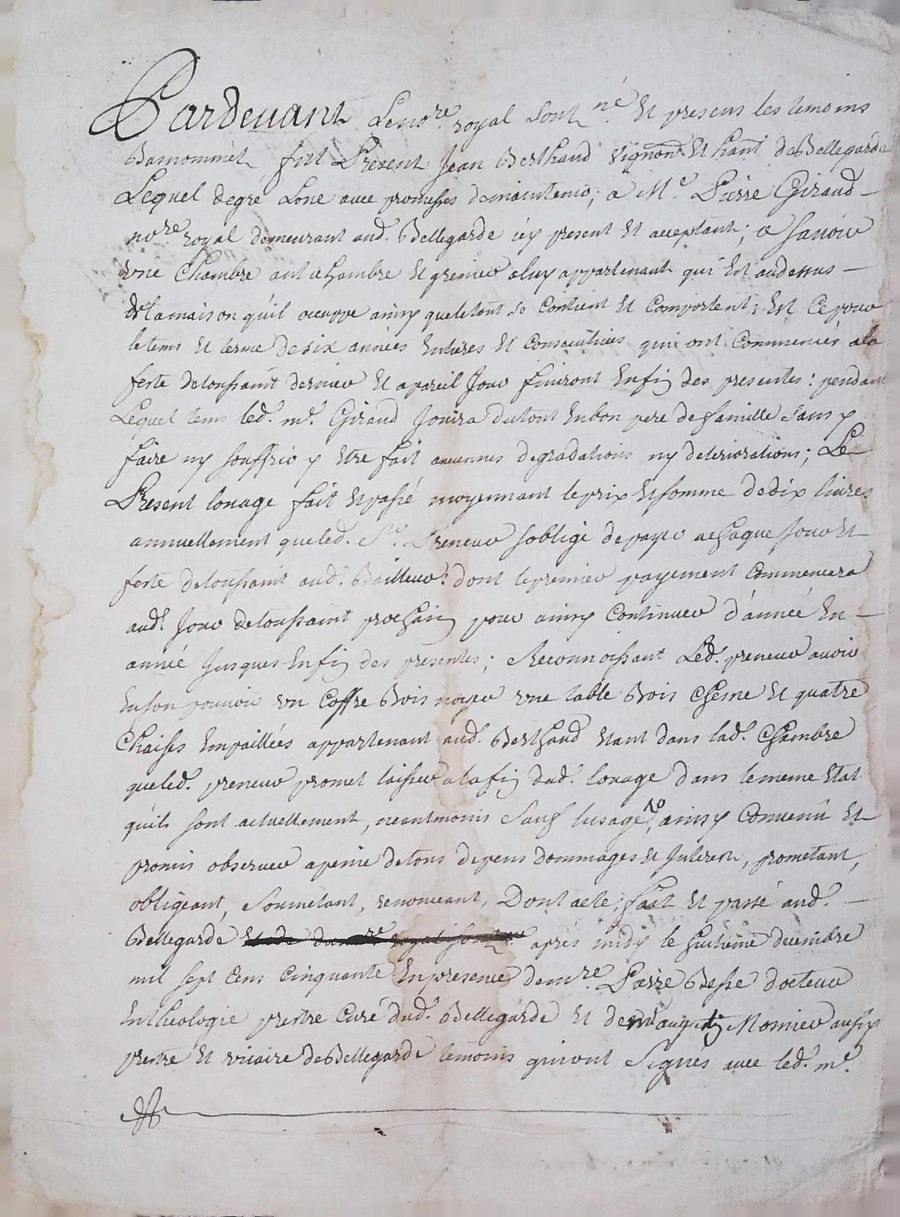 Pardevant Le no.re royal souss.né Et presens les temoins
Basnommés fut Present Jean Berthaud vigneron Et hant. de Bellegarde
Lequel de gré Loue avec promesses de maintenir, a M.e Pierre Giraud
no.re royal demeurant aud. Bellegarde icy present Et acceptant; a savoir
une Chambre antichambre Et grenier a luy appartenant qui Est au dessus
de la maison qu'il occuppe ainsy que le tout se contient Et comportent; Est ce pour
le tems Et terme de six années Entieres Et Consecutives qui ont Commencés a la
feste de toussaint dernier Et a pareil Jour finiront En fin des presentes: pendant
Lequel tems led. m.e Giraud Jouira du tout En bon pere de famille sans y
faire ny souffrir y Etre fait aucunnes degradations ny deteriorations; Le
Present louage fait Et passé moyennant le prix Et somme de dix livres
annuellement que led. S.r Preneur s'oblige de payer a chaque Jour Et
feste de toussaint aud. Bailleur: dont le premier payement Commencera
aud. Jour de toussaint prochain pour ainsy Continuer d'année En
année Jusques En fin des presentes; Reconnoissant Led. preneur avoir
En son pouvoir un Coffre Bois noyer une table Bois Chesne Et quatre
Chaises Empaillées appartenant aud. Berthaud Etant dans lad. Chambre
que led. preneur promet laisser a la fin dud. louage dans le meme Etat
qu'ils sont actuellement, neantmoins sauf l'usage, ainsy Convenu Et
promis observer a peine de tous depens dommages Et Interest, prometant,
obligeant, soumétant, renonceant, Dont acte fait Et passé aud.
Bellegarde apres midy le huitieme decembre
mil sept Cens Cinquante En presence de m.re Pierre Besse docteur
En theologie prestre Curé dud. Bellegarde Et de m.re augustin Monier aussy
prestre Et vicaire de Bellegarde temoins qui ont Signés avec led. m.e